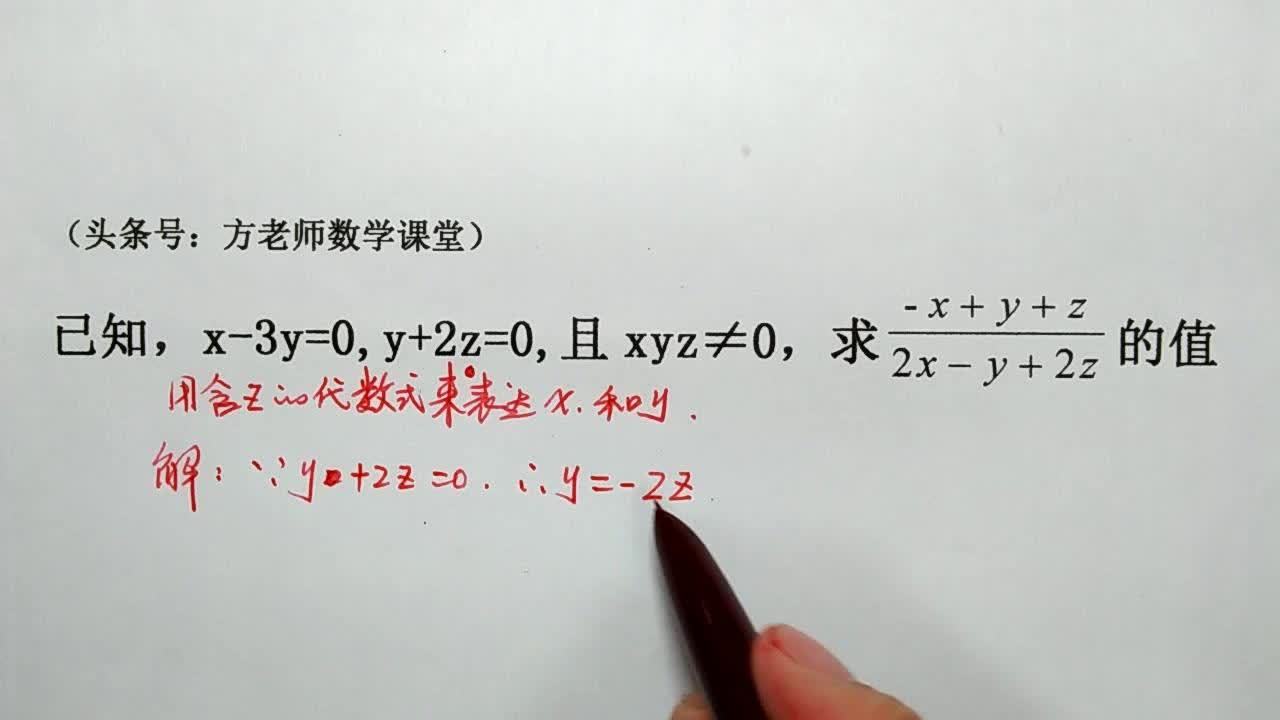 （头条号：方老师数学课堂）
已知，x-3y=0,y+2z=0,且 xyz≠0，求 \frac{-x+y+z}{2x-y+2z} 的值
用含z的代数式来表达x.和y.
解：∵y+2z=0.∴y=-2z